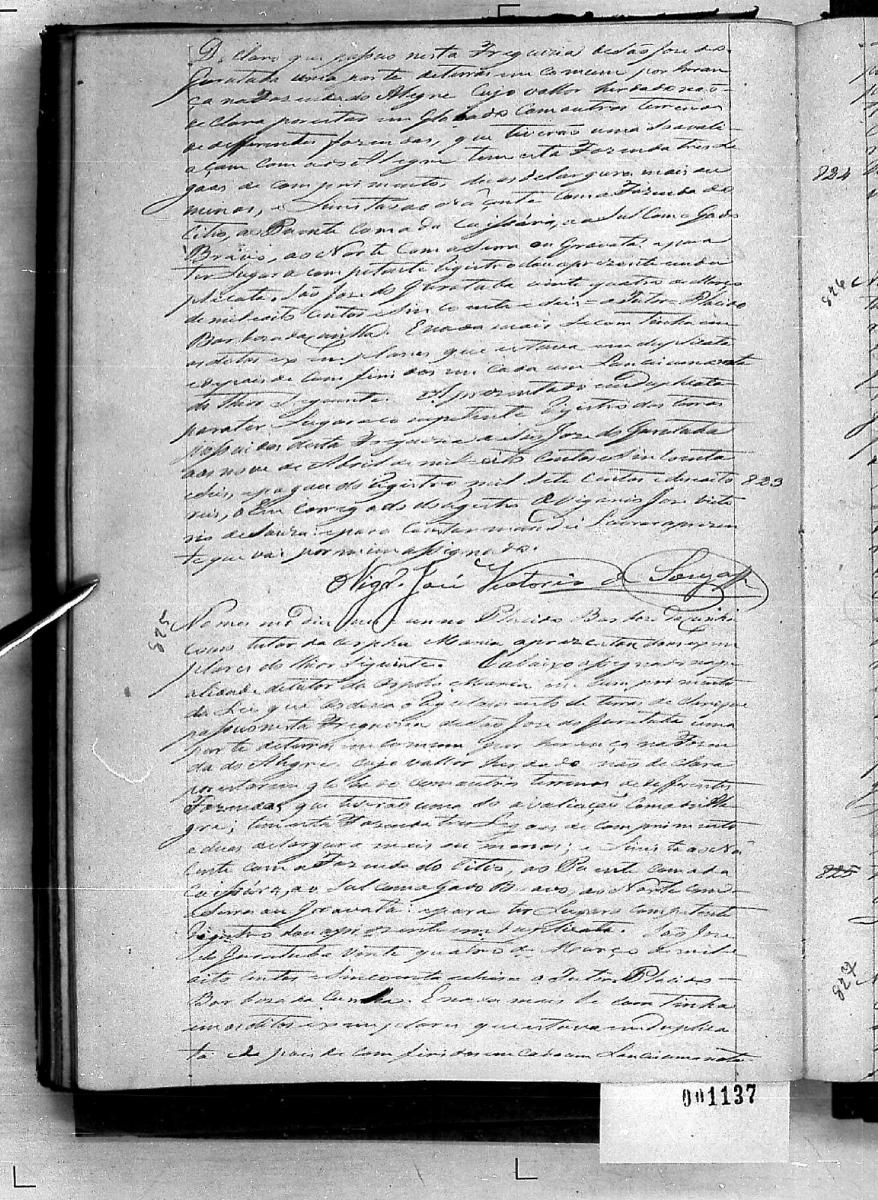 Declaro que possuo nesta Freguezia de São José do
Curutuba uma parte de terras em comum por heran
ça na Fazenda do Alegre cujo vallor herdado não
declara por estar em globado com outros terrenos
de defferentes fazendas, que tiverão uma só avali
açam com a do Allegre tem esta Fazenda tres le
goas de comprimento e duas de largura mais ou
menos, e Limitasse ao Naçente com a Fazenda do
Citio, ao Poente com a da Caissára, ao Sul com o Gado
Bravo, ao Norte com a Serra ou Gravatá e para
ter Lugar o competente registro dou a prezente em du
plicata. São José do Gurutuba vinte quatro de Março
de mil oito centos e Sincoenta e dois = o Tutor Placido
Barboza da Cunha. E nada mais Se continha em
os ditos exemplares que estava em duplicata
e depois de comfiridos em cada um Lancei uma nota
do thior Seguinte. Aprezentado em Duplicata
para ter Lugar o competente Registro das terras
possuidas desta Freguezia de São José do Gurutuba
aos nove de Abril de mil oito centos e Sincoenta
e dois, e pagou do Registro mil sete centos e dezoito 823
reis, o Encarregado do Registro o Vigario José Victo
rio de Souza e para constar mandei Lavrar a prezen
te que vai por mim assignada.
O Vigro. José Victorio de Souza
825 No mesmo dia mez e anno Placido Barboza da Cunha
como tutor da orphã Maria aprezentou dous exem
plares do thior Siguinte. O abaixo assignado na qu
alidade de tutor da Orphã Maria em cumprimento
da Lei que ordena o Regulamento de terras declaro que
possuo nesta Freguezia de São José do Gurutuba uma
parte de terras em comum por herança na Fazen
da do Alegre cujo vallor herdado não declara
por estarem globado com outros terrenos de defferentes
Fazendas que tiverão uma só avaliação com a do Ale
gre; tem esta Fazenda tres Legoas de comprimento
e duas de largura mais ou menos; e Limita ao Na
cente com a Fazenda do Citio, ao Poente com a da
Caissára, ao Sul com o gado Bravo, ao Norte com a
Serra ou Gravatá: e para ter Lugar o competente
registro dou a prezente em duplicata. São José
do Gurutuba vinte quatro de Março de mil
oito centos e Sincoenta e dois = o Tutor Placido
Barboza da Cunha. E nada mais Se continha
em os ditos exemplares que estava em duplica
ta e depois de comfiridos em cada um Lancei uma nota
824
826
825
827
001137